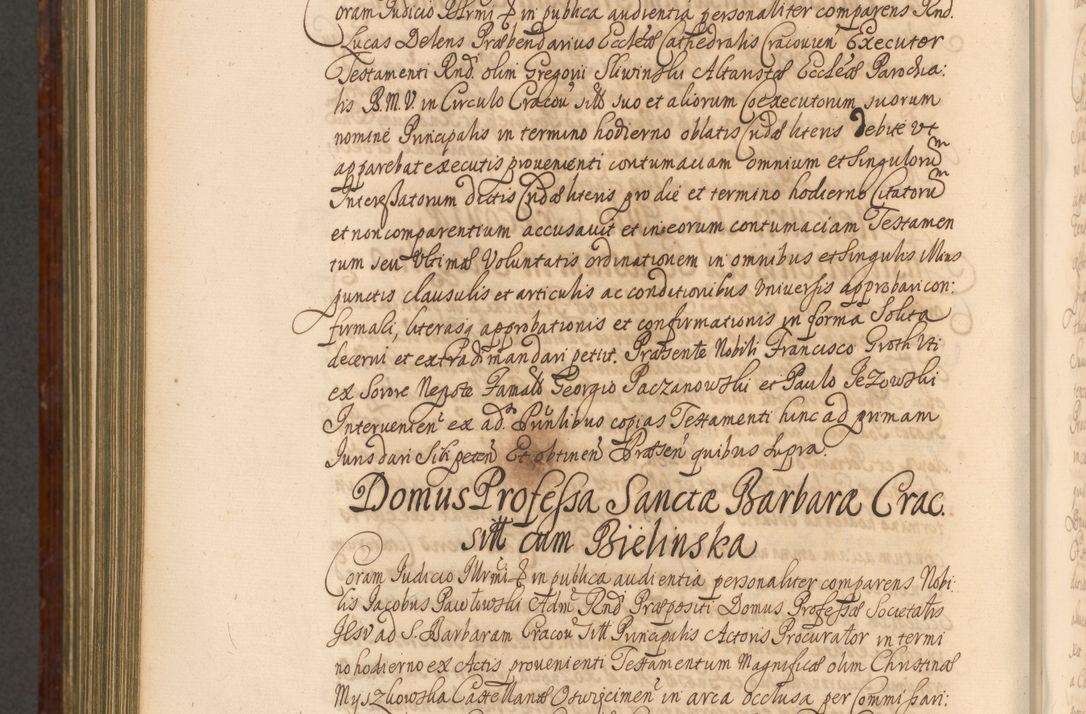 Coram Judicio Illrmi & in publica audientia personaliter comparens Rnd.
Lucas Delens Præbendarius Ecclesæ Cathedralis Cracovien Executor
Testamenti Rnd. olim Gregorii Sliwinski Altaristæ Ecclesæ Parochia:
lis B. M. V. in Circulo Cracou sitt suo et aliorum Coexecutorum suorum
nomine Principalis in termino hodierno oblatis Cridæ literis debite ut
apparebat executis provenienti contumaciam omnium et Singulorum
Interessatorum dictis Cridæ literis pro die et termino hodierno Citatorum
et non comparentium accusavit et in eorum contumaciam Testamen
tum seu Ultimæ Voluntatis ordinationem in omnibus et Singulis illius
punctis clausulis et articulis ac conditionibus universis approbari con:
firmali, literasq approbationis et confirmationis in forma Solita
decerni et extradi mandari petiit. Præsente Nobili Francisco Groth Uti
ex Sorore Nepote Famatis Georgio Paczanowski et Paulo Jezowski
Intervenien ex ad. Prnlibus copias Testamenti hinc ad primam
Juris dari Sibi peten Et obtinen Præsen quibus Supra.
Domus Professa Sanctæ Barbaræ Crac.
sitt cum Bielinska
Coram Judicio Illrmi & in publica audientia personaliter comparens Nobi:
lis Jacobus Pawlowski Adm Rnd Præpositi Domus Professæ Societatis
Jesv ad S. Barbaram Cracou Sitt Principalis Actoris Procurator in termi
no hodierno ex Actis provenienti Testamentum Magnificæ olim Christinæ
Myszkowska Castellanæ Oswiecimen in arca occlusa per Commissari: